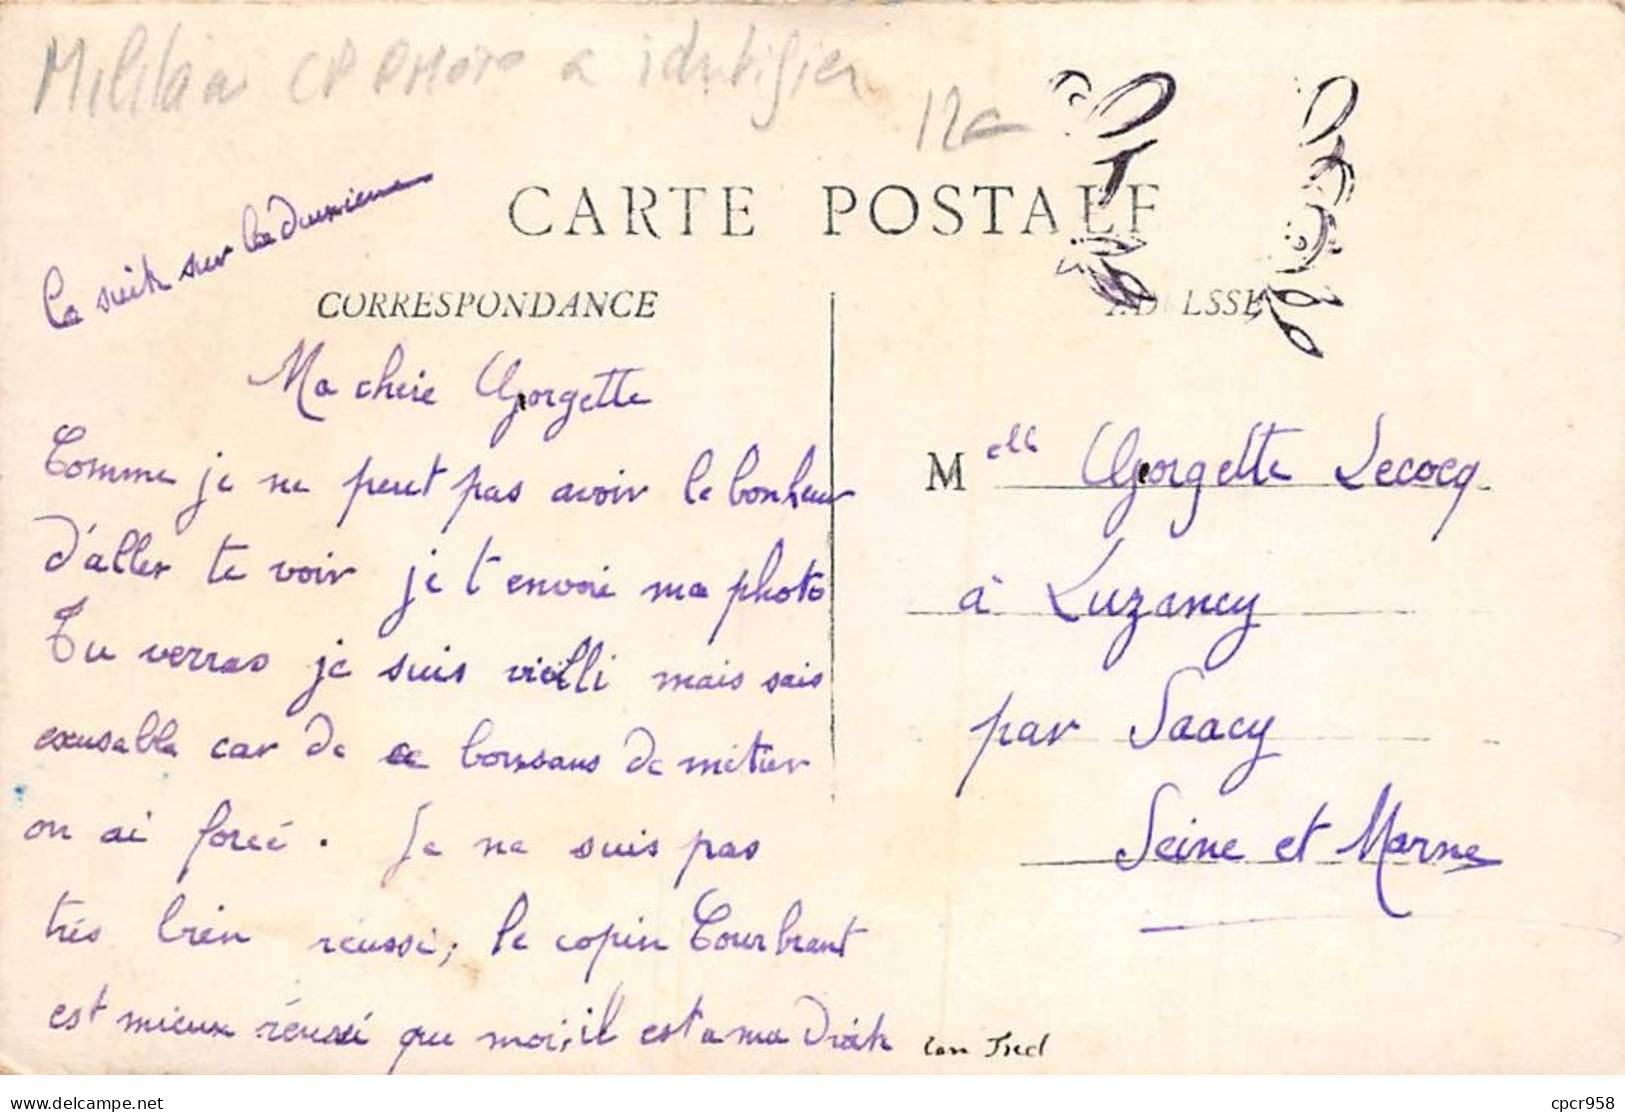 a identifier
12€
La suite sur la deuxieme
CARTE POSTALE
CORRESPONDANCE
ADRESSE
Ma cheie Georgette
Comme je ne peut pas avoir le bonheur
d'aller te voir je t'envoie ma photo
Tu verras je suis vieilli mais sais
exusable car de ce de métier
on ai forcé. Je ne suis pas
très bien réussi, le copin Courbrant
est mieux réussi que moi, il est a ma droite
M elle Georgette Lecocq
à Luzancy
par Saacy
Seine et Marne
ton Fred
cpcr958